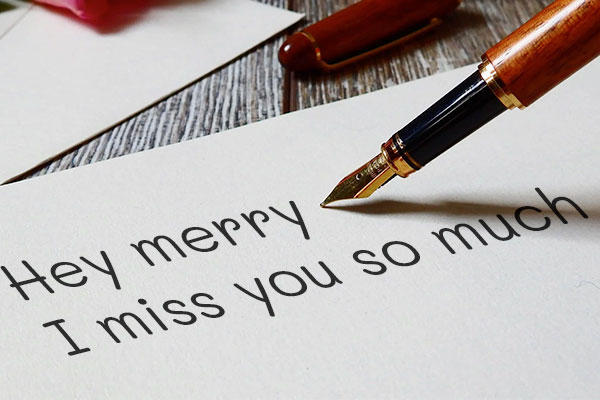 Hey merry
I miss you so much